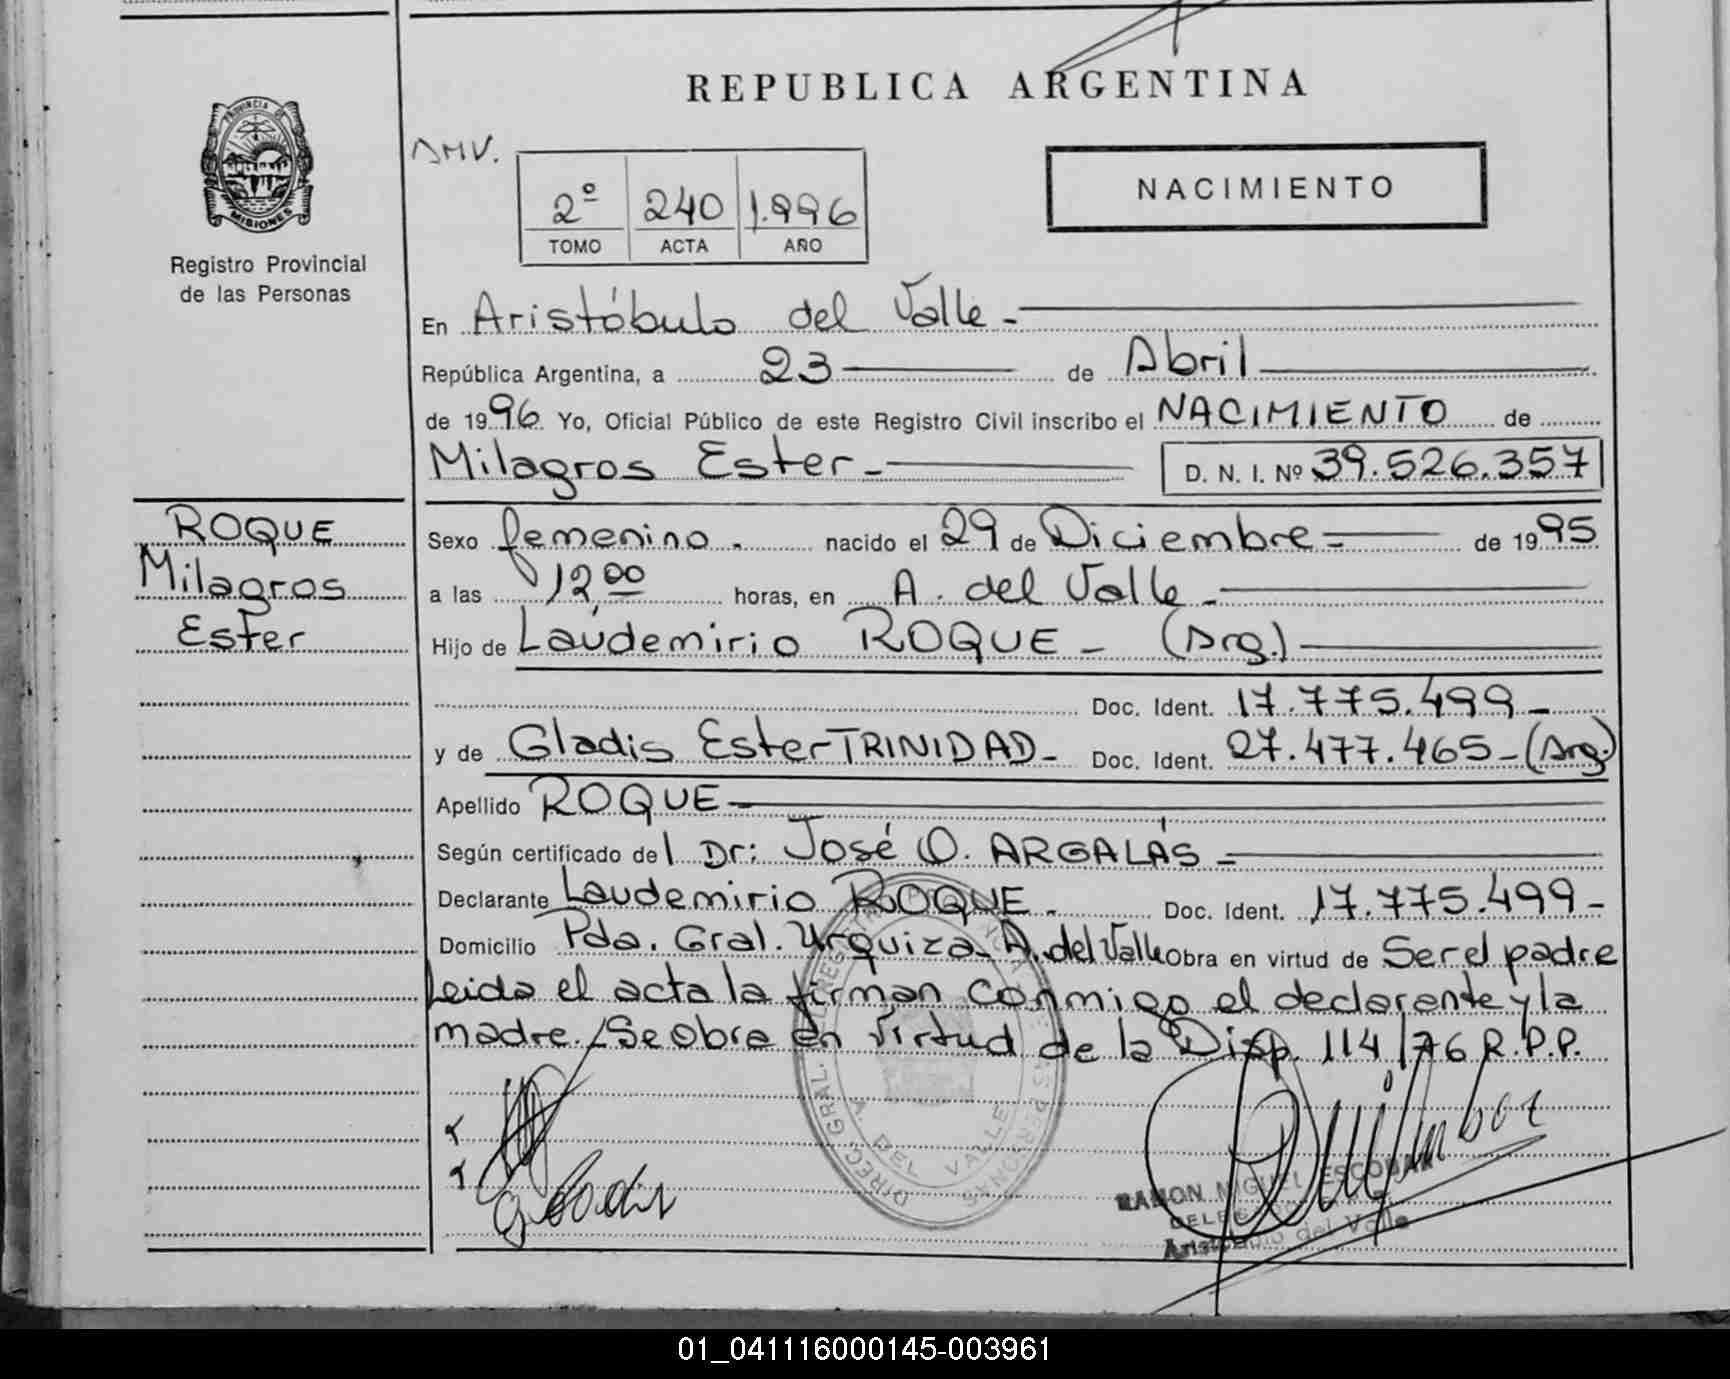 REPUBLICA ARGENTINA
PROVINCIA DE
MISIONES
Registro Provincial
de las Personas
2º 240 1.996
TOMO ACTA AÑO
NACIMIENTO
En Aristóbulo del Valle -
República Argentina, a 23 de Abril
de 1996 Yo, Oficial Público de este Registro Civil inscribo el NACIMIENTO de
Milagros Ester - D. N. I. Nº 39.526.357
ROQUE
Milagros
Ester
Sexo femenino. nacido el 29 de Diciembre - de 1995
a las 12,00 horas, en A. del Valle -
Hijo de Laudemirio ROQUE - (Arg.)
Doc. Ident. 17.775.499 -
y de Gladis Ester TRINIDAD - Doc. Ident. 27.477.465 - (Arg.)
Apellido ROQUE -
Según certificado del Dr: José O. ARGALÁS -
Declarante Laudemirio ROQUE. Doc. Ident. 17.775.499 -
Domicilio Pda. Gral. Urquiza - A. del Valle Obra en virtud de Ser el padre
Leida el acta la firman conmigo el declarante y la
madre./Se obra en virtud de la Disp. 114/76 R.P.P.
A. DEL VALLE
Gladis
RAMON MIGUEL ESCOBAR
Aristobulo del Valle
01_041116000145-003961